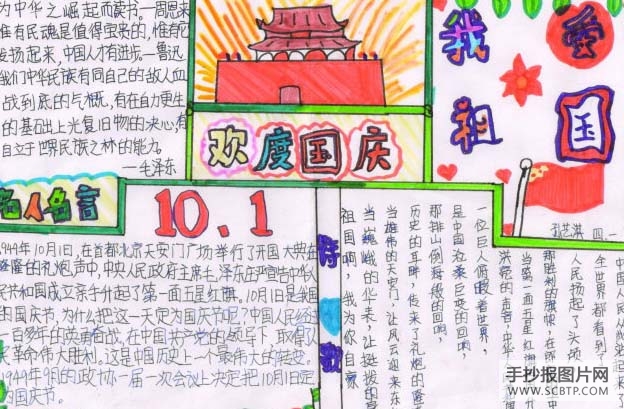 为中华之崛起而读书。一周恩来
惟有民魂是值得宝贵的,惟有
发扬起来,中国人才有进步。一鲁迅
我们中华民族有同自己的敌人血
战到底的气概,有在自力更生
的基础上光复旧物的决心,有
自立于世界民族之林的能力。
一毛泽东
欢度国庆
我爱
祖国
孔艺淇 四.一
名人名言
10.1
1949年10月1日,在首都北京天安门广场举行了开国大典在
隆隆的礼炮声中,中央人民政府主席毛泽东庄严宣告中华
民共和国成立亲手升起了第一面五星红旗。10月1日是我
的国庆节。为什么把这一天定为国庆节呢?中国人民经
一百多年的英勇奋战,在中国共产党的领导下,取得
革命伟大胜利。这是中国历史上一个最伟大的转变。
1949年9月的政协一届一次会议上决定把10月1日定
国庆节。
诗歌
中国人民从此站起来了
全世界都看到
人民扬起了头颅
那胜利的旗帜,在
当第一面五星红
洪亮的声音,中华
一位巨人俯瞰着世界,
是中国沧桑巨变的回响,
那排山倒海般的回响,
历史的耳畔,传来了礼炮的隆
当雄伟的天安门,让风云迎来东
当巍峨的华表,让挺拔的
祖国啊,我为你自豪
手抄报图片网
WWW.SCBTP.COM